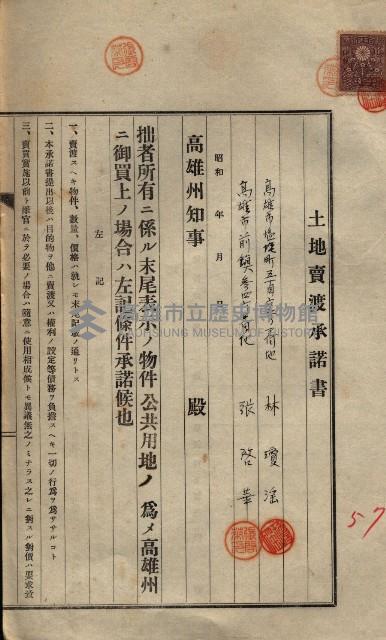 土地賣渡承諾書
高雄市塩埕町五百
番地 林瓊瑤
高雄市前鎮
番地 張啓華
昭和 年 月 日
高雄州知事 殿
拙者所有ニ係ル末尾表示ノ物件公共用地ノ爲メ高雄州
ニ御買上ノ場合ハ左記條件承諾候也
左記
一、賣渡スヘキ物件、數量、價格ハ總レモ末尾記載ノ通リトス
二、本承諾書提出以後ハ目的物ヲ他ニ賣渡又ハ權利ノ設定等債務ヲ負擔スヘキ一切ノ行爲ヲ爲ササルコト
三、賣買實施以前ト雖官ニ於テ必要ノ場合ハ隨意ニ使用相成候トモ異議無之ノミナラス之レニ對スル對價ハ要求致
57
高雄市立歷史博物館
KAOHSIUNG MUSEUM OF HISTORY